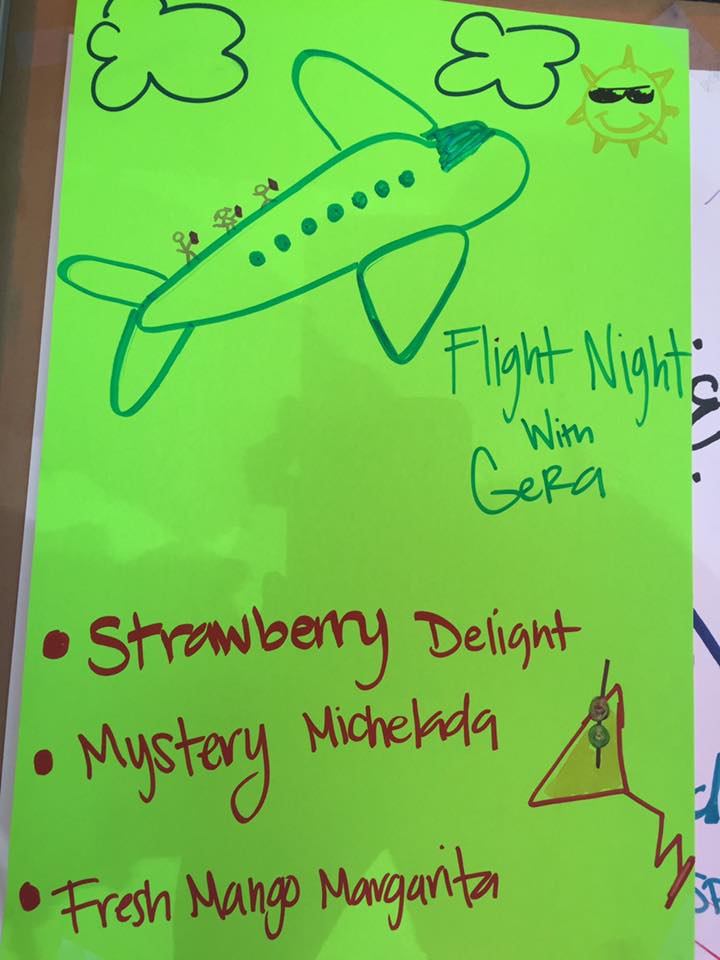 Flight Night
With
Gera
• Strawberry Delight
• Mystery Michelada
• Fresh Mango Margarita